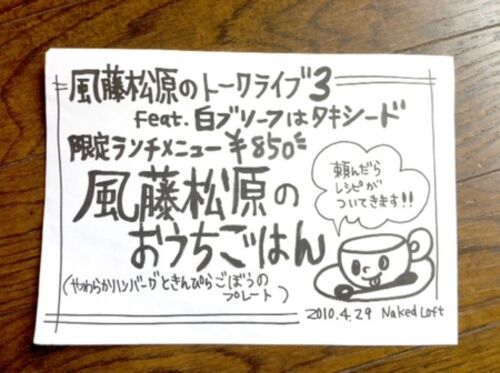 風藤松原のトークライブ3
feat. 白ブリーフはタキシード
限定ランチメニュー ¥850-
風藤松原の
おうちごはん
(やわらかハンバーグときんぴらごぼうの
プレート)
頼んだら
レシピが
ついてきます!!
2010.4.29 Naked Loft